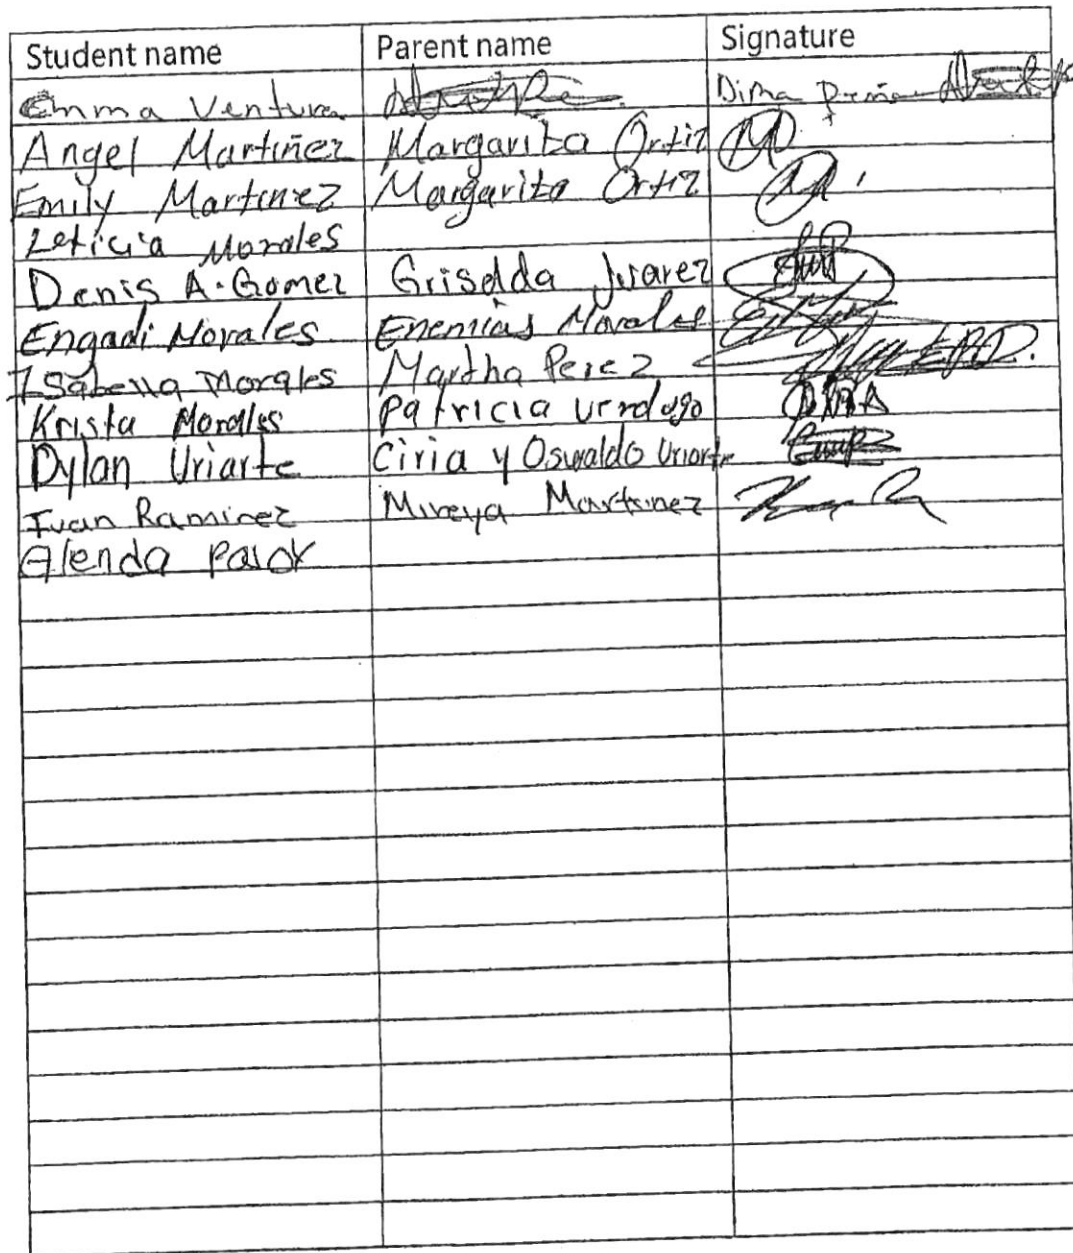 Student name Parent name Signature
Emma Ventura Dina Peña
Angel Martiñez Margarita Ortiz
Emily Martinez Margarita Ortiz
Leticia Morales
Denis A. Gomez Griselda Juarez
Engadi Morales Enemias Morales
Isabella Morales Martha Perez
Krista Morales Patricia Verdugo
Dylan Uriarte Ciria y Oswaldo Uriarte
Ivan Ramirez Mireya Martinez
Glenda